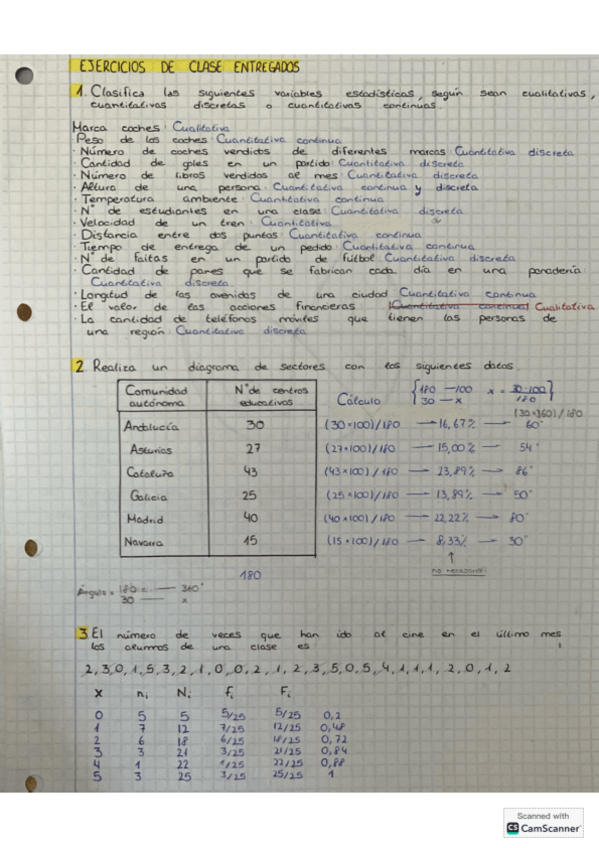 EJERCICIOS DE CLASE ENTREGADOS
1. Clasifica las siguientes variables estadísticas, según sean cualitativas,
cuantitativas discretas o cuantitativas continuas.
Marca coches: Cualitativa
Peso de los coches: Cuantitativa continua
· Número de coches vendidos de diferentes marcas: Cuantitativa discreta
· Cantidad de goles en un partido: Cuantitativa discreta
· Número de libros vendidos al mes: Cuantitativa discreta
· Altura de una persona: Cuantitativa continua y discreta
· Temperatura ambiente: Cuantitativa continua
· Nº de estudiantes en una clase: Cuantitativa discreta
· Velocidad de un tren: Cuantitativa
· Distancia entre dos puntos: Cuantitativa continua
· Tiempo de entrega de un pedido: Cuantitativa continua
· Nº de faltas en un partido de fútbol: Cuantitativa discreta
· Cantidad de panes que se fabrican cada día en una panadería:
Cuantitativa discreta
· Longitud de las avenidas de una ciudad: Cuantitativa continua
· El valor de las acciones financieras: (Cuantitativa continua) Cualitativa
· La cantidad de teléfonos móviles que tienen las personas de
una región: Cuantitativa discreta
2. Realiza un diagrama de sectores con los siguientes datos.
Comunidad autónoma Nº de centros educativos Cálculo {180 — 100 x = 30·100/180}
30 — x
(30×360)/180
Andalucía 30 (30×100)/180 → 16,67% → 60°
Asturias 27 (27×100)/180 → 15,00% → 54°
Cataluña 43 (43×100)/180 → 23,89% → 86°
Galicia 25 (25×100)/180 → 13,89% → 50°
Madrid 40 (40×100)/180 → 22,22% → 80°
Navarra 15 (15×100)/180 → 8,33% → 30°
↑
180 no necesario
Ángulo = 180 — 360°
30 — x
3 El número de veces que han ido al cine en el último mes
los alumnos de una clase es
2,3,0,1,5,3,2,1,0,0,2,1,2,3,5,0,5,4,1,1,1,2,0,1,2
x ni Ni fi Fi
0 5 5 5/25 5/25 0,2
1 7 12 7/25 12/25 0,48
2 6 18 6/25 18/25 0,72
3 3 21 3/25 21/25 0,84
4 1 22 1/25 22/25 0,88
5 3 25 3/25 25/25 1
Scanned with
CS CamScanner